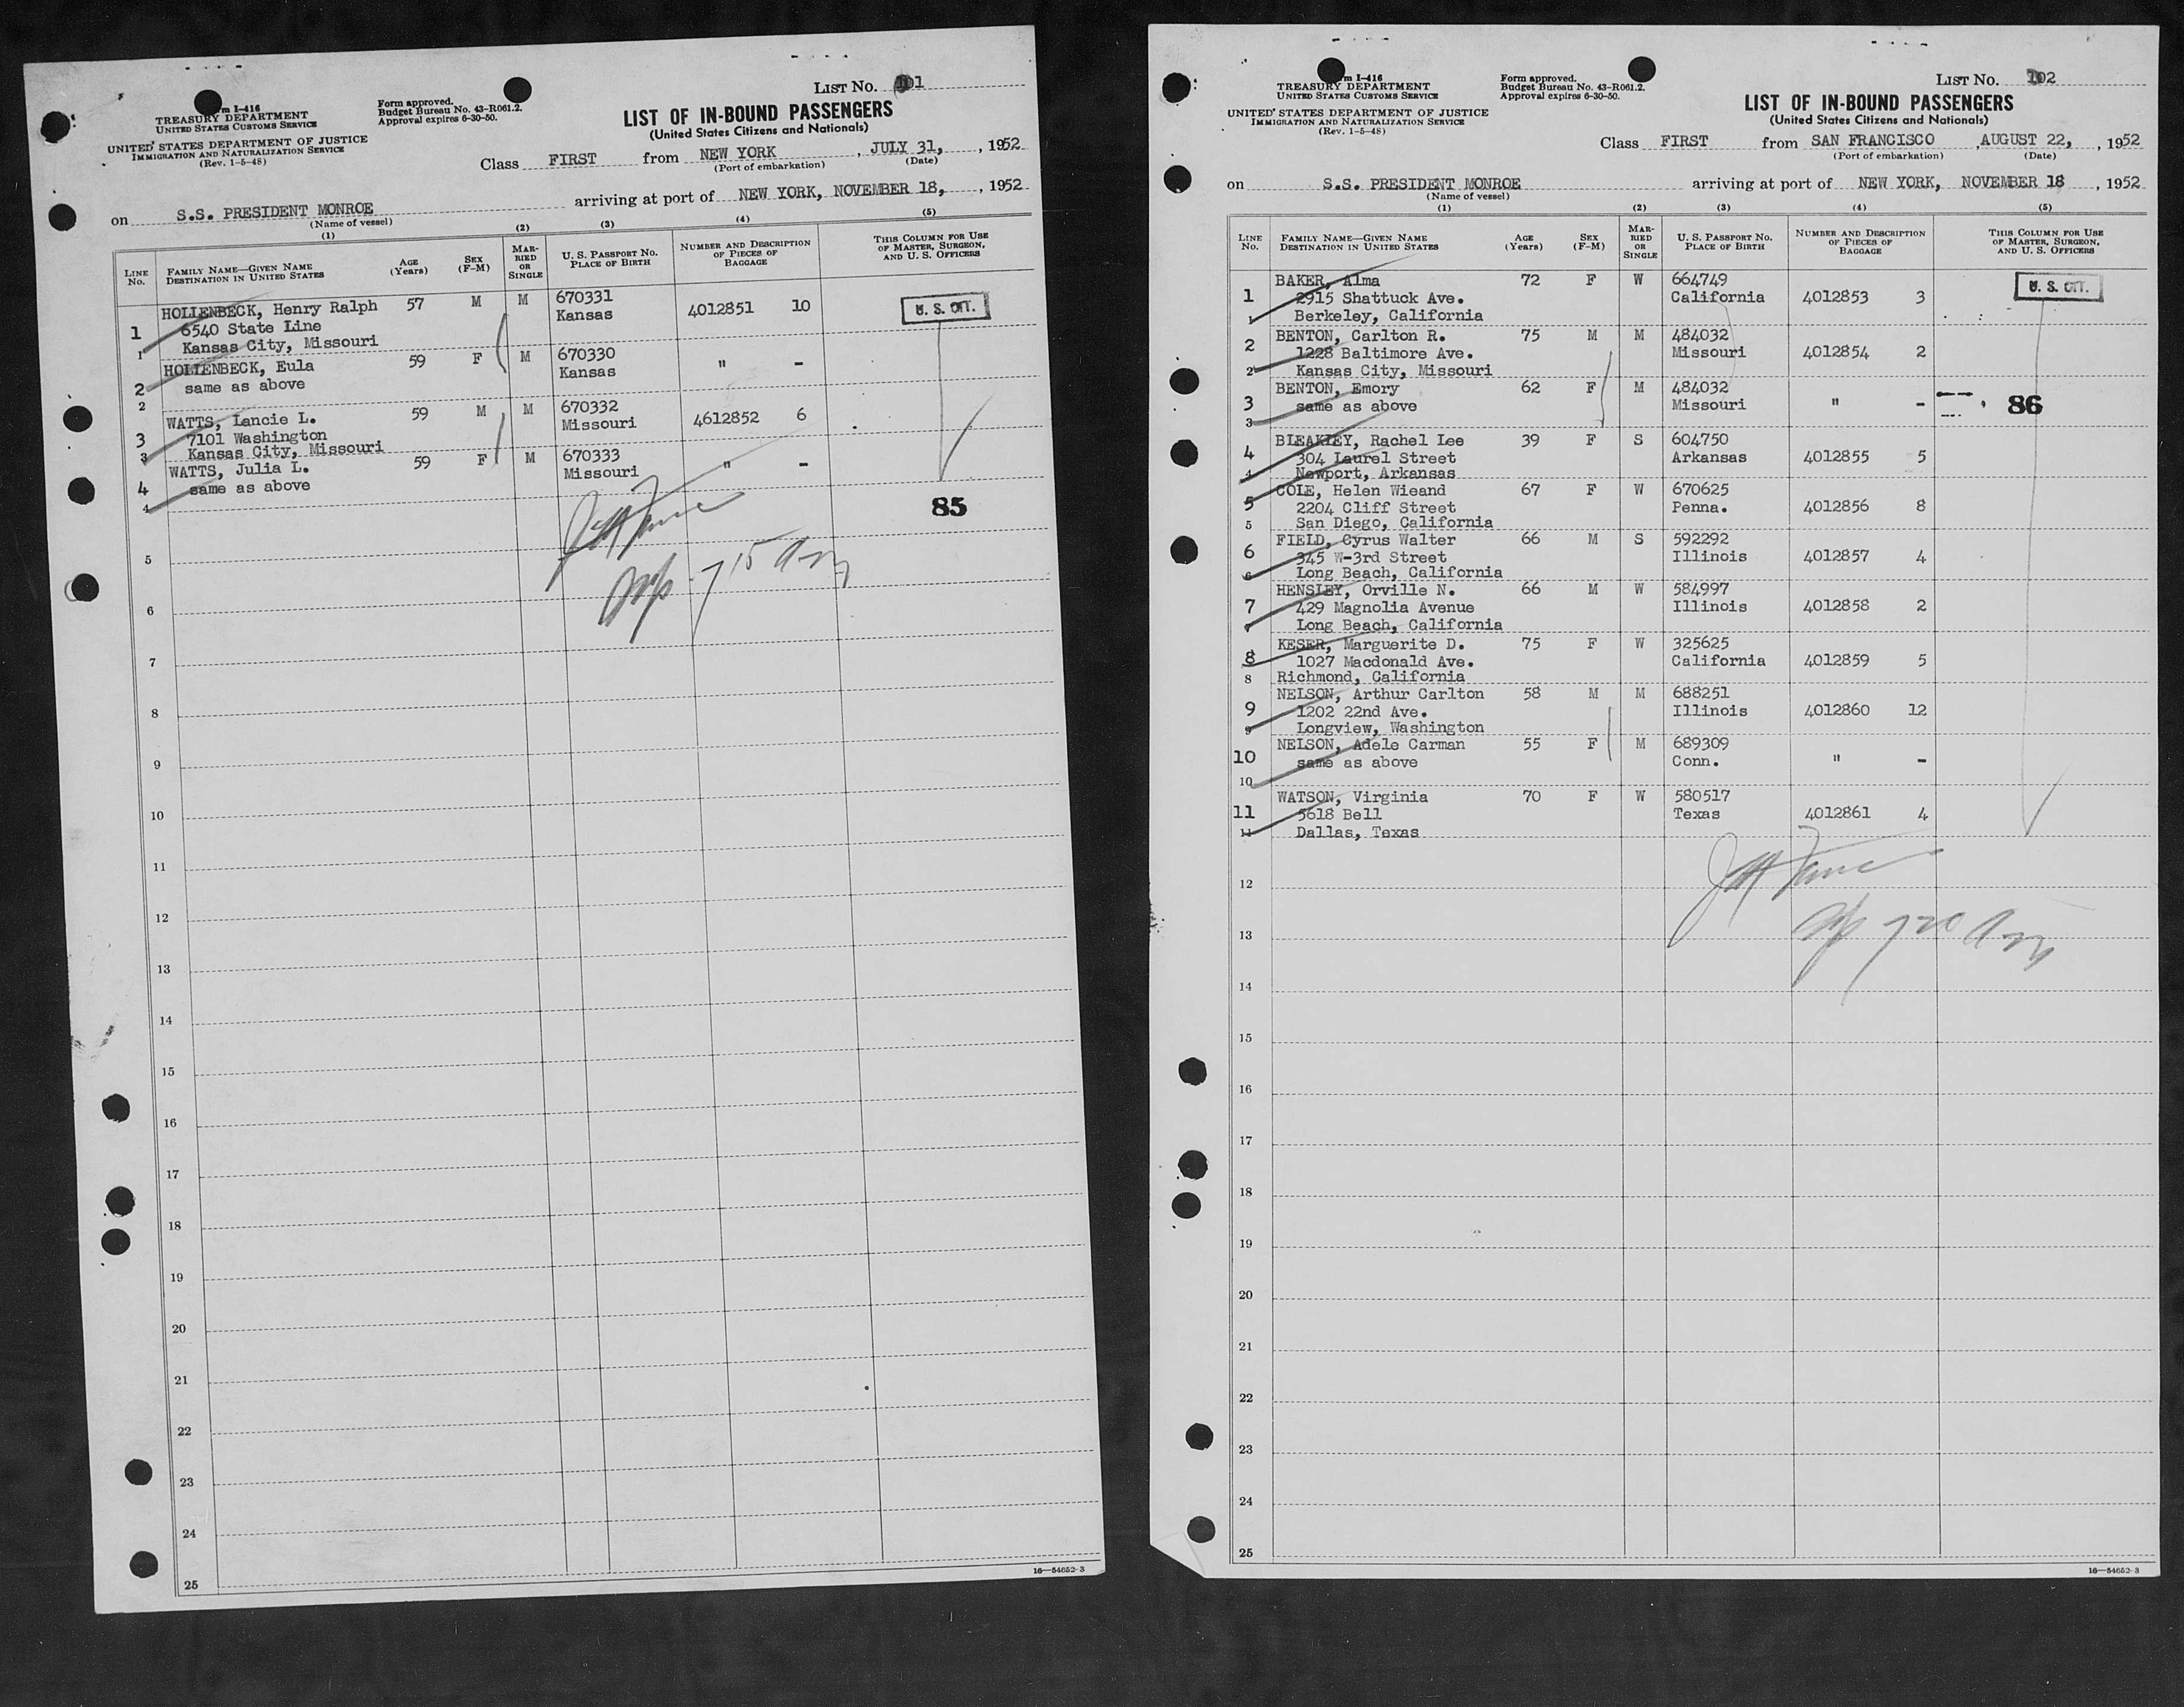 LIST NO. 101
Form I-416
TREASURY DEPARTMENT
UNITED STATES CUSTOMS SERVICE
UNITED STATES DEPARTMENT OF JUSTICE
IMMIGRATION AND NATURALIZATION SERVICE
(Rev. 1-5-48)
Form approved.
Budget Bureau No. 43-R061.2.
Approval expires 6-30-50.
LIST OF IN-BOUND PASSENGERS
(United States Citizens and Nationals)
Class FIRST from NEW YORK , JULY 31, , 1952
(Port of embarkation) (Date)
on S.S. PRESIDENT MONROE arriving at port of NEW YORK, NOVEMBER 18, , 1952
(Name of vessel)
(1) (2) (3) (4) (5)
LINE No. FAMILY NAME—GIVEN NAME DESTINATION IN UNITED STATES AGE (Years) SEX (F-M) MARRIED OR SINGLE U. S. PASSPORT No. PLACE OF BIRTH NUMBER AND DESCRIPTION OF PIECES OF BAGGAGE THIS COLUMN FOR USE OF MASTER, SURGEON, AND U. S. OFFICERS
HOLLENBECK, Henry Ralph 57 M M 670331
1 6540 State Line Kansas 4012851 10 U. S. CIT.
1 Kansas City, Missouri
HOLLENBECK, Eula 59 F M 670330
2 same as above Kansas " -
2
WATTS, Lancie L. 59 M M 670332
3 7101 Washington Missouri 4612852 6
3 Kansas City, Missouri
WATTS, Julia L. 59 F M 670333
4 same as above Missouri " -
4
85
5
6
7 15 am
7
8
9
10
11
12
13
14
15
16
17
18
19
20
21
22
23
24
25
16—54652-3
LIST NO. 102
Form I-416
TREASURY DEPARTMENT
UNITED STATES CUSTOMS SERVICE
UNITED STATES DEPARTMENT OF JUSTICE
IMMIGRATION AND NATURALIZATION SERVICE
(Rev. 1-5-48)
Form approved.
Budget Bureau No. 43-R061.2.
Approval expires 6-30-50.
LIST OF IN-BOUND PASSENGERS
(United States Citizens and Nationals)
Class FIRST from SAN FRANCISCO , AUGUST 22, , 1952
(Port of embarkation) (Date)
on S.S. PRESIDENT MONROE arriving at port of NEW YORK, NOVEMBER 18 , 1952
(Name of vessel)
(1) (2) (3) (4) (5)
LINE No. FAMILY NAME—GIVEN NAME DESTINATION IN UNITED STATES AGE (Years) SEX (F-M) MARRIED OR SINGLE U. S. PASSPORT No. PLACE OF BIRTH NUMBER AND DESCRIPTION OF PIECES OF BAGGAGE THIS COLUMN FOR USE OF MASTER, SURGEON, AND U. S. OFFICERS
BAKER, Alma 72 F W 664749 U. S. CIT.
1 2915 Shattuck Ave. California 4012853 3
1 Berkeley, California
BENTON, Carlton R. 75 M M 484032
2 1228 Baltimore Ave. Missouri 4012854 2
2 Kansas City, Missouri
BENTON, Emory 62 F M 484032
3 same as above Missouri " - 86
3
BLEAKLEY, Rachel Lee 39 F S 604750
4 304 Laurel Street Arkansas 4012855 5
4 Newport, Arkansas
COLE, Helen Wieand 67 F W 670625
5 2204 Cliff Street Penna. 4012856 8
5 San Diego, California
FIELD, Cyrus Walter 66 M S 592292
6 345 W-3rd Street Illinois 4012857 4
6 Long Beach, California
HENSLEY, Orville N. 66 M W 584997
7 429 Magnolia Avenue Illinois 4012858 2
7 Long Beach, California
KESER, Marguerite D. 75 F W 325625
8 1027 Macdonald Ave. California 4012859 5
8 Richmond, California
NELSON, Arthur Carlton 58 M M 688251
9 1202 22nd Ave. Illinois 4012860 12
9 Longview, Washington
NELSON, Adele Carman 55 F M 689309
10 same as above Conn. " -
10
WATSON, Virginia 70 F W 580517
11 5618 Bell Texas 4012861 4
11 Dallas, Texas
12
7 20 am
13
14
15
16
17
18
19
20
21
22
23
24
25
16—54652-3